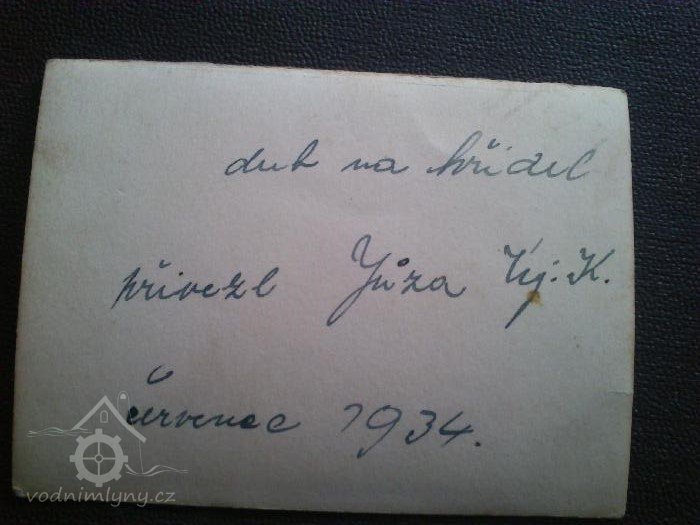 dub na hřídel
přivezl Jůza Új. K.
červenec 1934.
vodnimlyny.cz